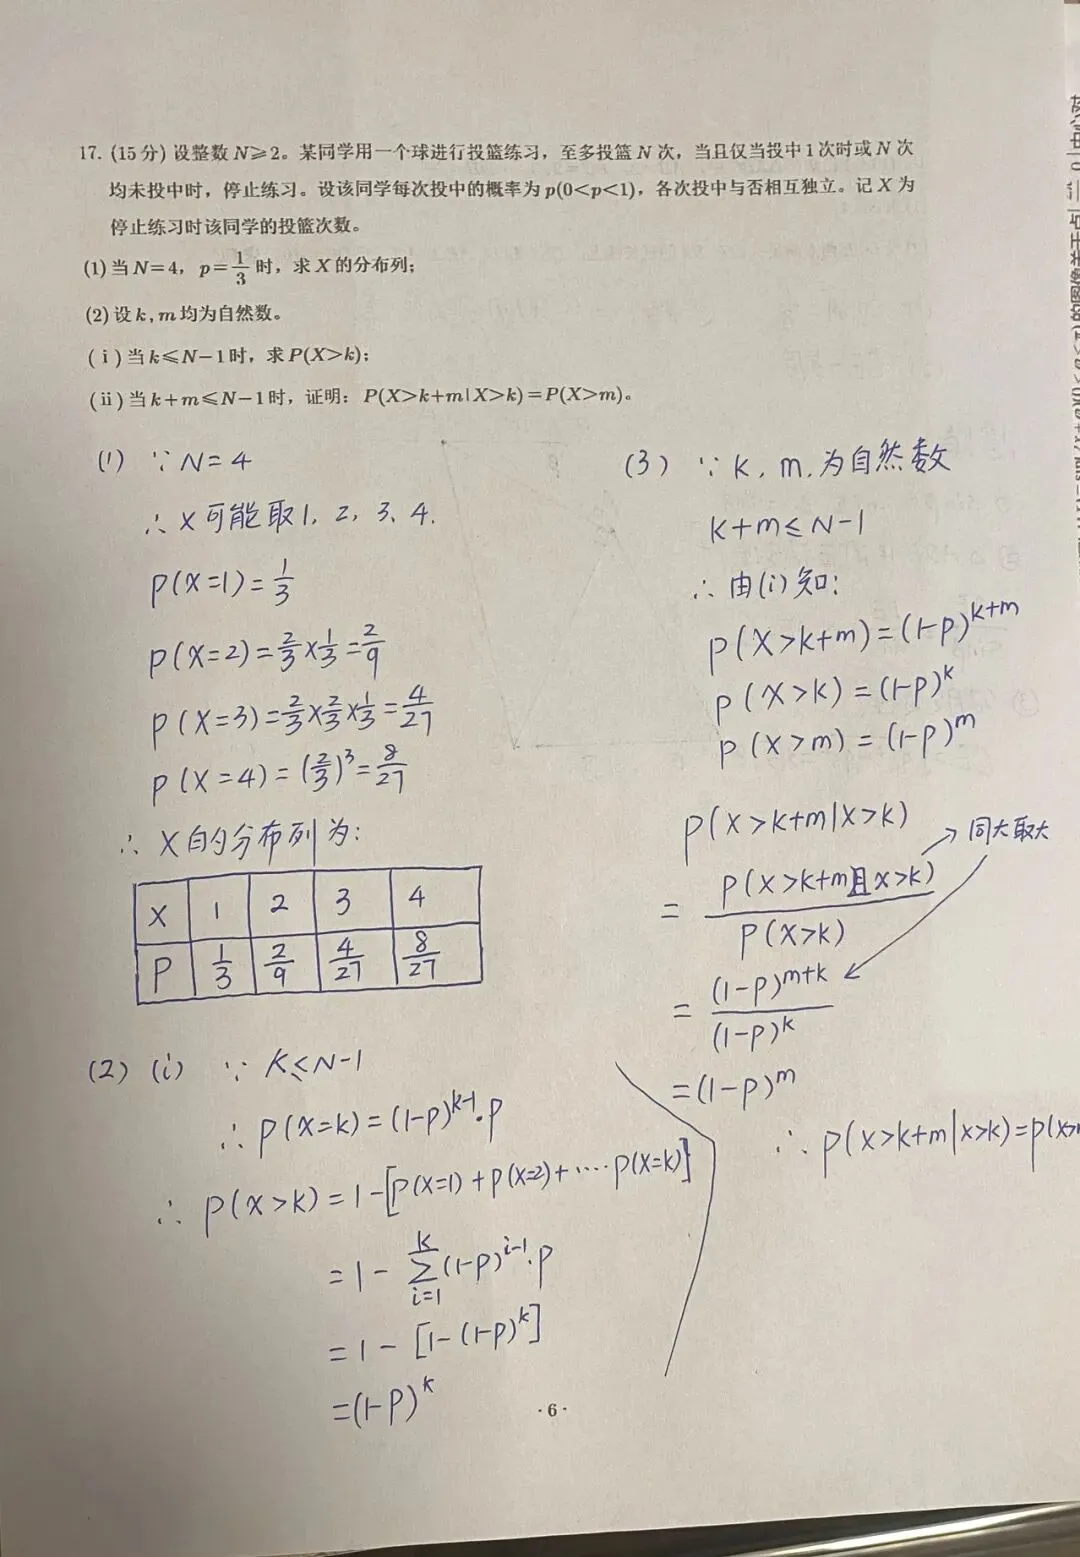 17. (15分) 设整数 N⩾2。某同学用一个球进行投篮练习，至多投篮 N 次，当且仅当投中1次时或 N 次
均未投中时，停止练习。设该同学每次投中的概率为 p(0<p<1)，各次投中与否相互独立。记 X 为
停止练习时该同学的投篮次数。
(1)当 N=4，p=1/3 时，求 X 的分布列；
(2)设 k,m 均为自然数。
(ⅰ)当 k⩽N−1时，求 P(X>k)；
(ⅱ)当 k+m⩽N−1时，证明：P(X>k+m|X>k)=P(X>m)。
(1) ∵ N=4
∴ X可能取1, 2, 3、4.
P(X=1)=1/3
P(X=2)=2/3×1/3=2/9
P(X=3)=2/3×2/3×1/3=4/27
P(X=4)=(2/3)³=8/27
∴ X的分布列为:
X 1 2 3 4
P 1/3 2/9 4/27 8/27
(2) (i) ∵ K≤N-1
∴ P(X=k)=(1-P)^{k-1}·P
∴ P(X>k)=1-[P(X=1)+P(X=2)+····P(X=k)]
=1-∑_{i=1}^{k}(1-P)^{i-1}·P
=1-[1-(1-P)^k]
=(1-P)^k
(3) ∵ k, m, 为自然数
k+m≤N-1
∴ 由(i)知:
P(X>k+m)=(1-P)^{k+m}
P(X>k)=(1-P)^k
P(X>m)=(1-P)^m
P(X>k+m|X>k)
= P(X>k+m且X>k)/P(X>k)
同大取大
= (1-P)^{m+k}/(1-P)^k
=(1-P)^m
∴ P(X>k+m|X>k)=P(X>
·6·